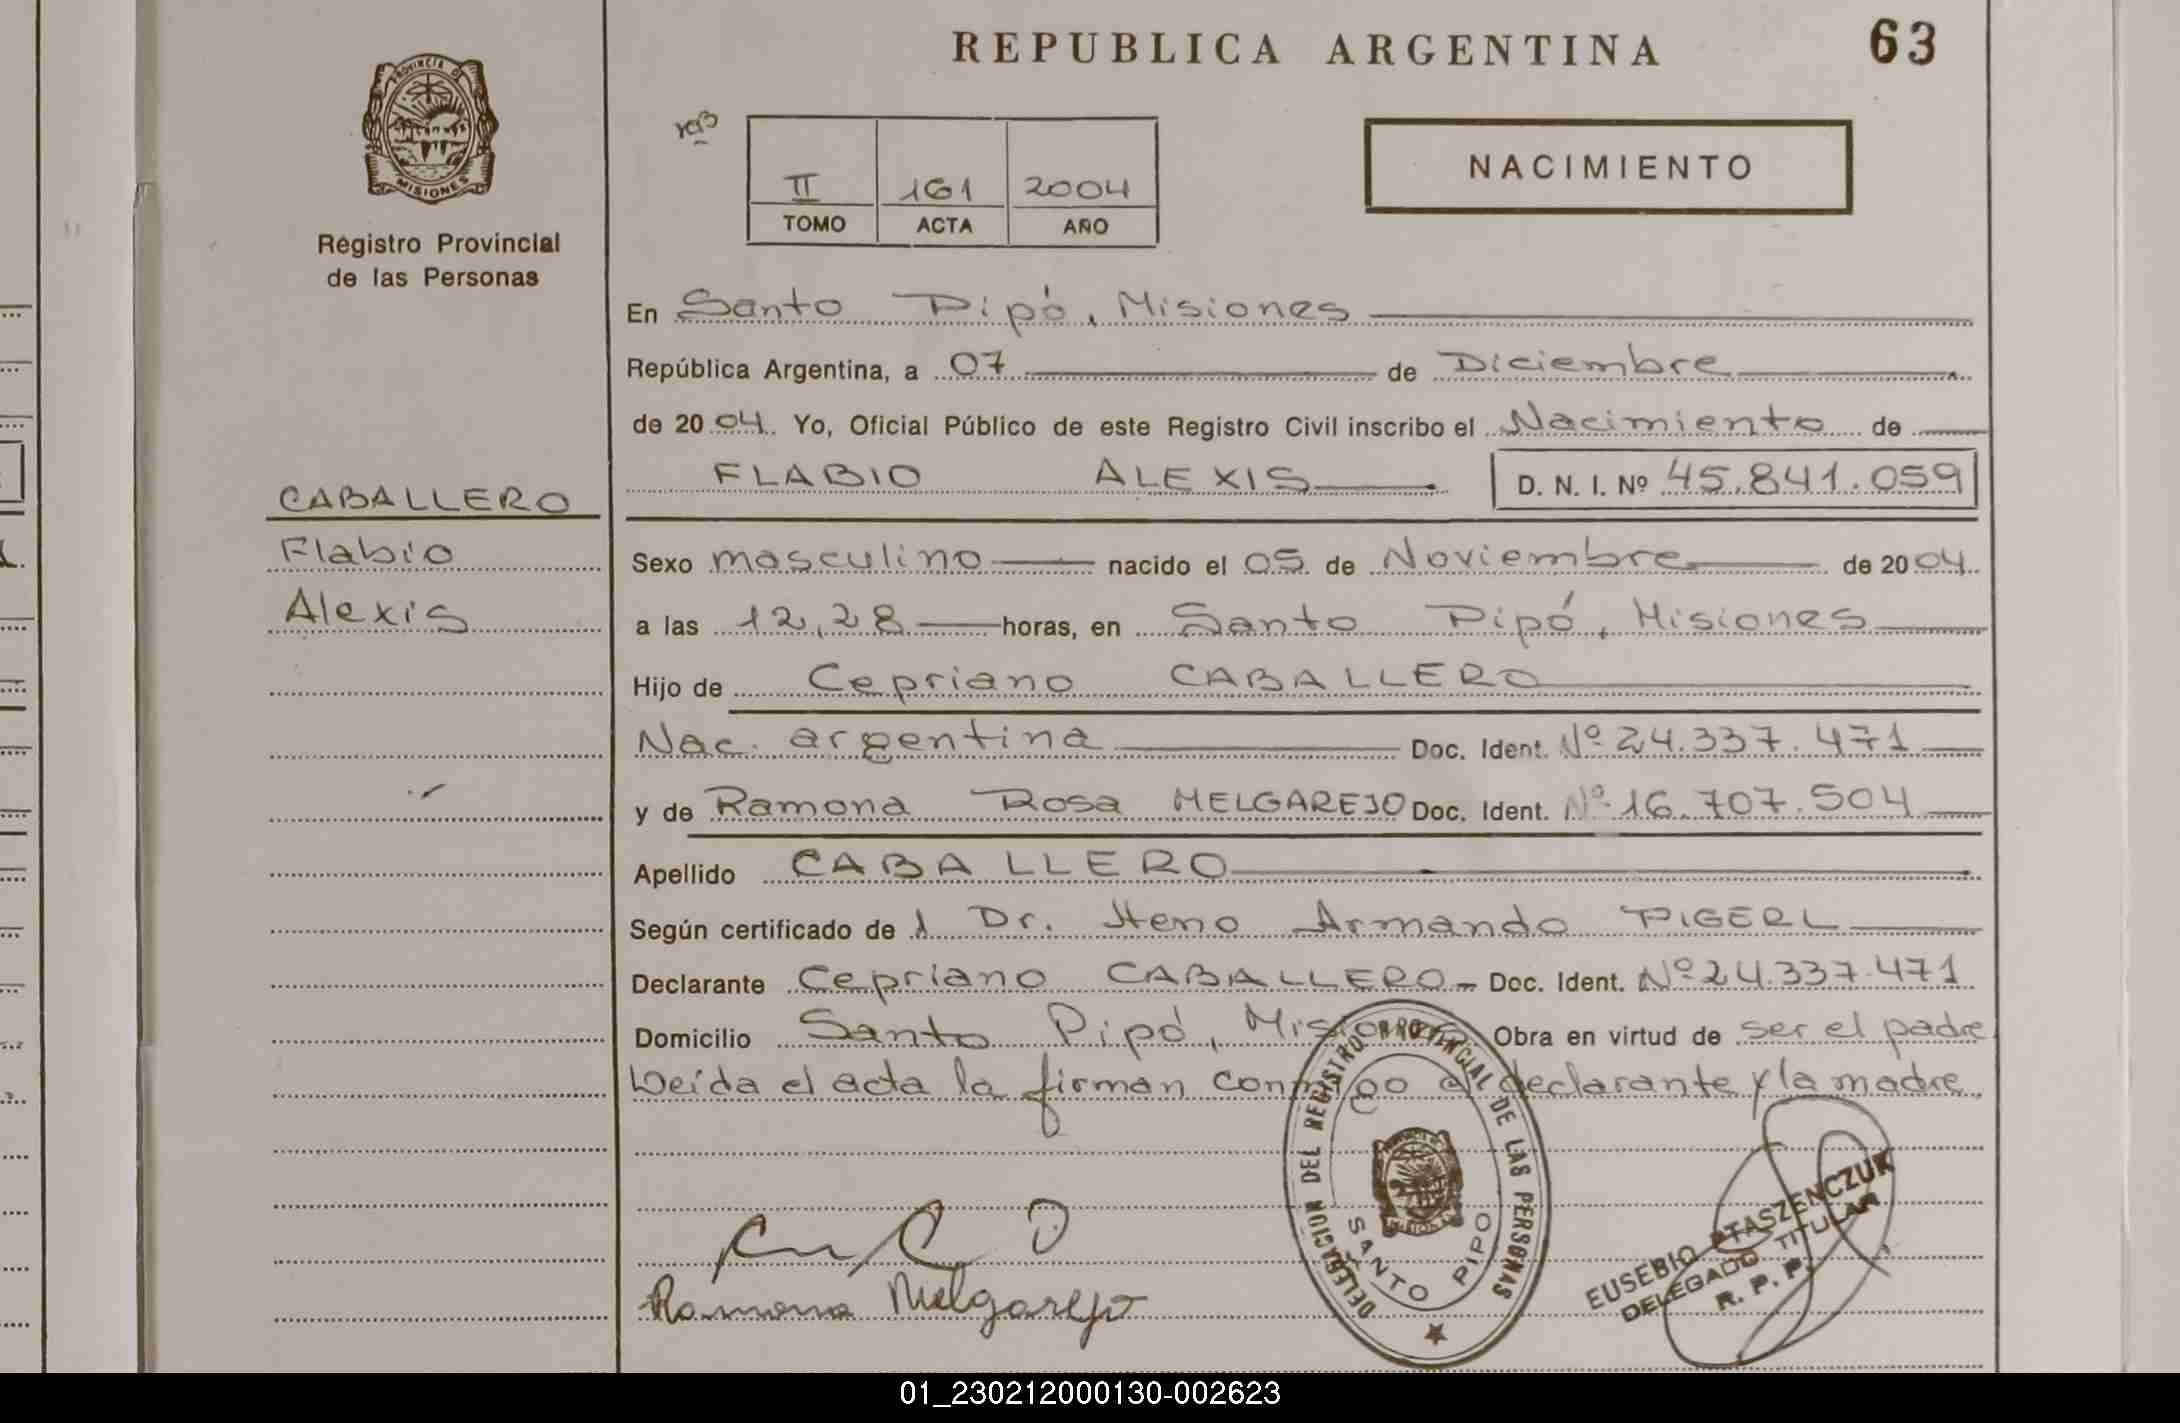 REPUBLICA ARGENTINA
63
PROVINCIA D
MISIONES
Registro Provincial
de las Personas
II 161 2004
TOMO ACTA AÑO
NACIMIENTO
En Santo Pipó, Misiones
República Argentina, a 07 de Diciembre
de 2004. Yo, Oficial Público de este Registro Civil inscribo el Nacimiento de
FLABIO ALEXIS D. N. I. Nº 45.841.059
CABALLERO
Flabio
Alexis
Sexo masculino nacido el 05 de Noviembre de 2004.
a las 12,28 horas, en Santo Pipó, Misiones
Hijo de Cepriano CABALLERO
Nac. argentina Doc. Ident. Nº 24.337.471
y de Ramona Rosa MELGAREJO Doc. Ident. Nº 16.707.504
Apellido CABALLERO
Según certificado de l Dr. Heno Armando PIGERL
Declarante Cepriano CABALLERO Doc. Ident. Nº 24.337.471
Domicilio Santo Pipó, Misiones Obra en virtud de ser el padre
Leída el acta la firman conmigo el declarante y la madre
DELEGACION DEL REGISTRO PROVINCIAL DE LAS PERSONAS
SANTO PIPO
Ramona Melgarejo
EUSEBIO PTASZENCZUK
DELEGADO TITULAR
R. P. P.
01_230212000130-002623